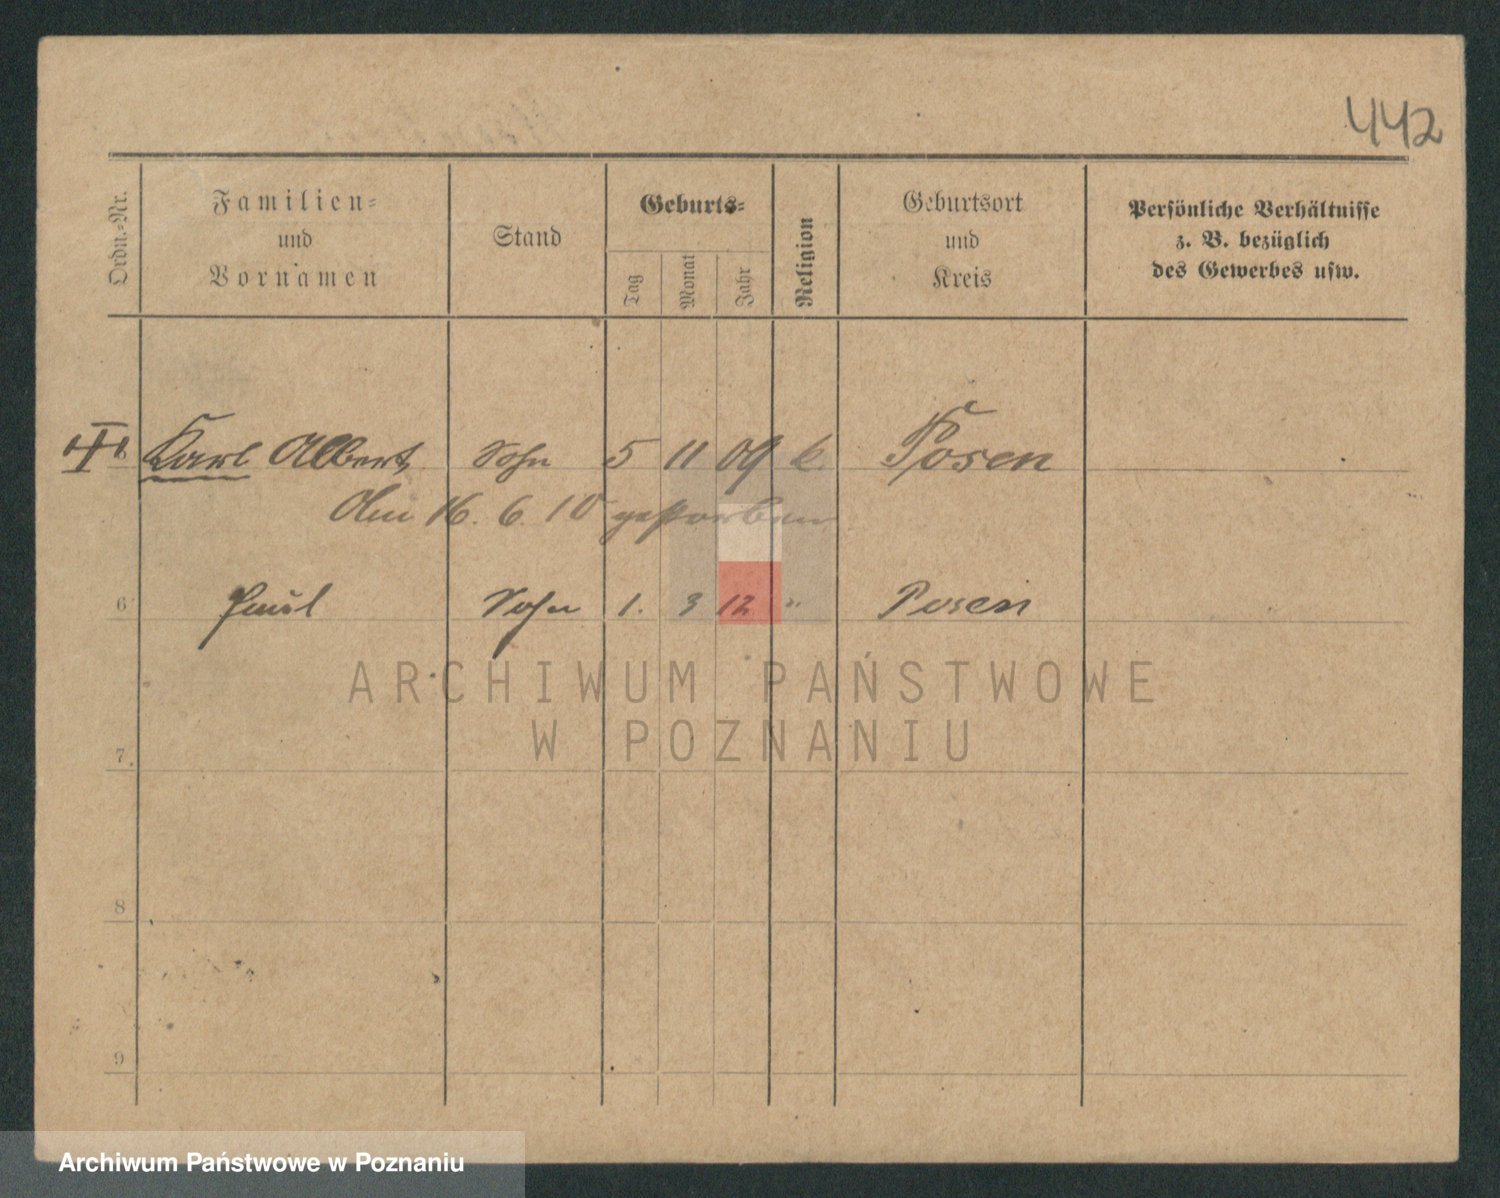 442
Ordn.-Nr.
Familien-
und
Vornamen
Stand
Geburts-
Tag
Monat
Jahr
Religion
Geburtsort
und
Kreis
Persönliche Verhältnisse
z. B. bezüglich
des Gewerbes usw.
Karl Albert Sohn 5 11 09 k. Posen
Am 16. 6. 10 gestorben
6 Paul Sohn 1. 3 12 " Posen
ARCHIWUM PAŃSTWOWE
W POZNANIU
7.
8
9
Archiwum Państwowe w Poznaniu